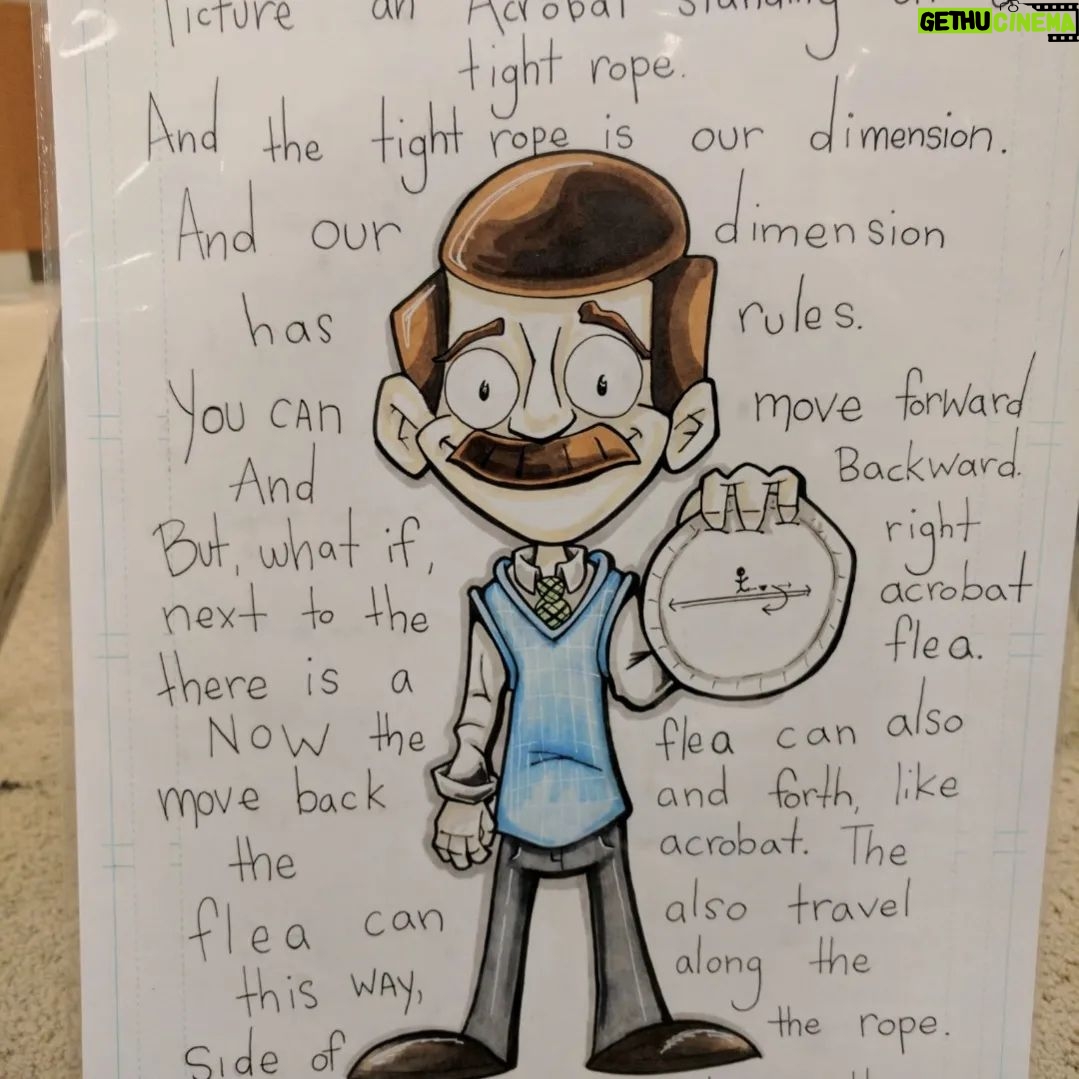 GETHUCINEMA
Picture an Acrobat standing
tight rope.
And the tight rope is our dimension.
And our dimension
has rules.
You CAN move forward
And Backward.
But, what if, right
next to the acrobat
there is a flea.
NOW the flea can also
move back and forth, like
the acrobat. The
flea can also travel
this WAY, along the
Side of the rope.